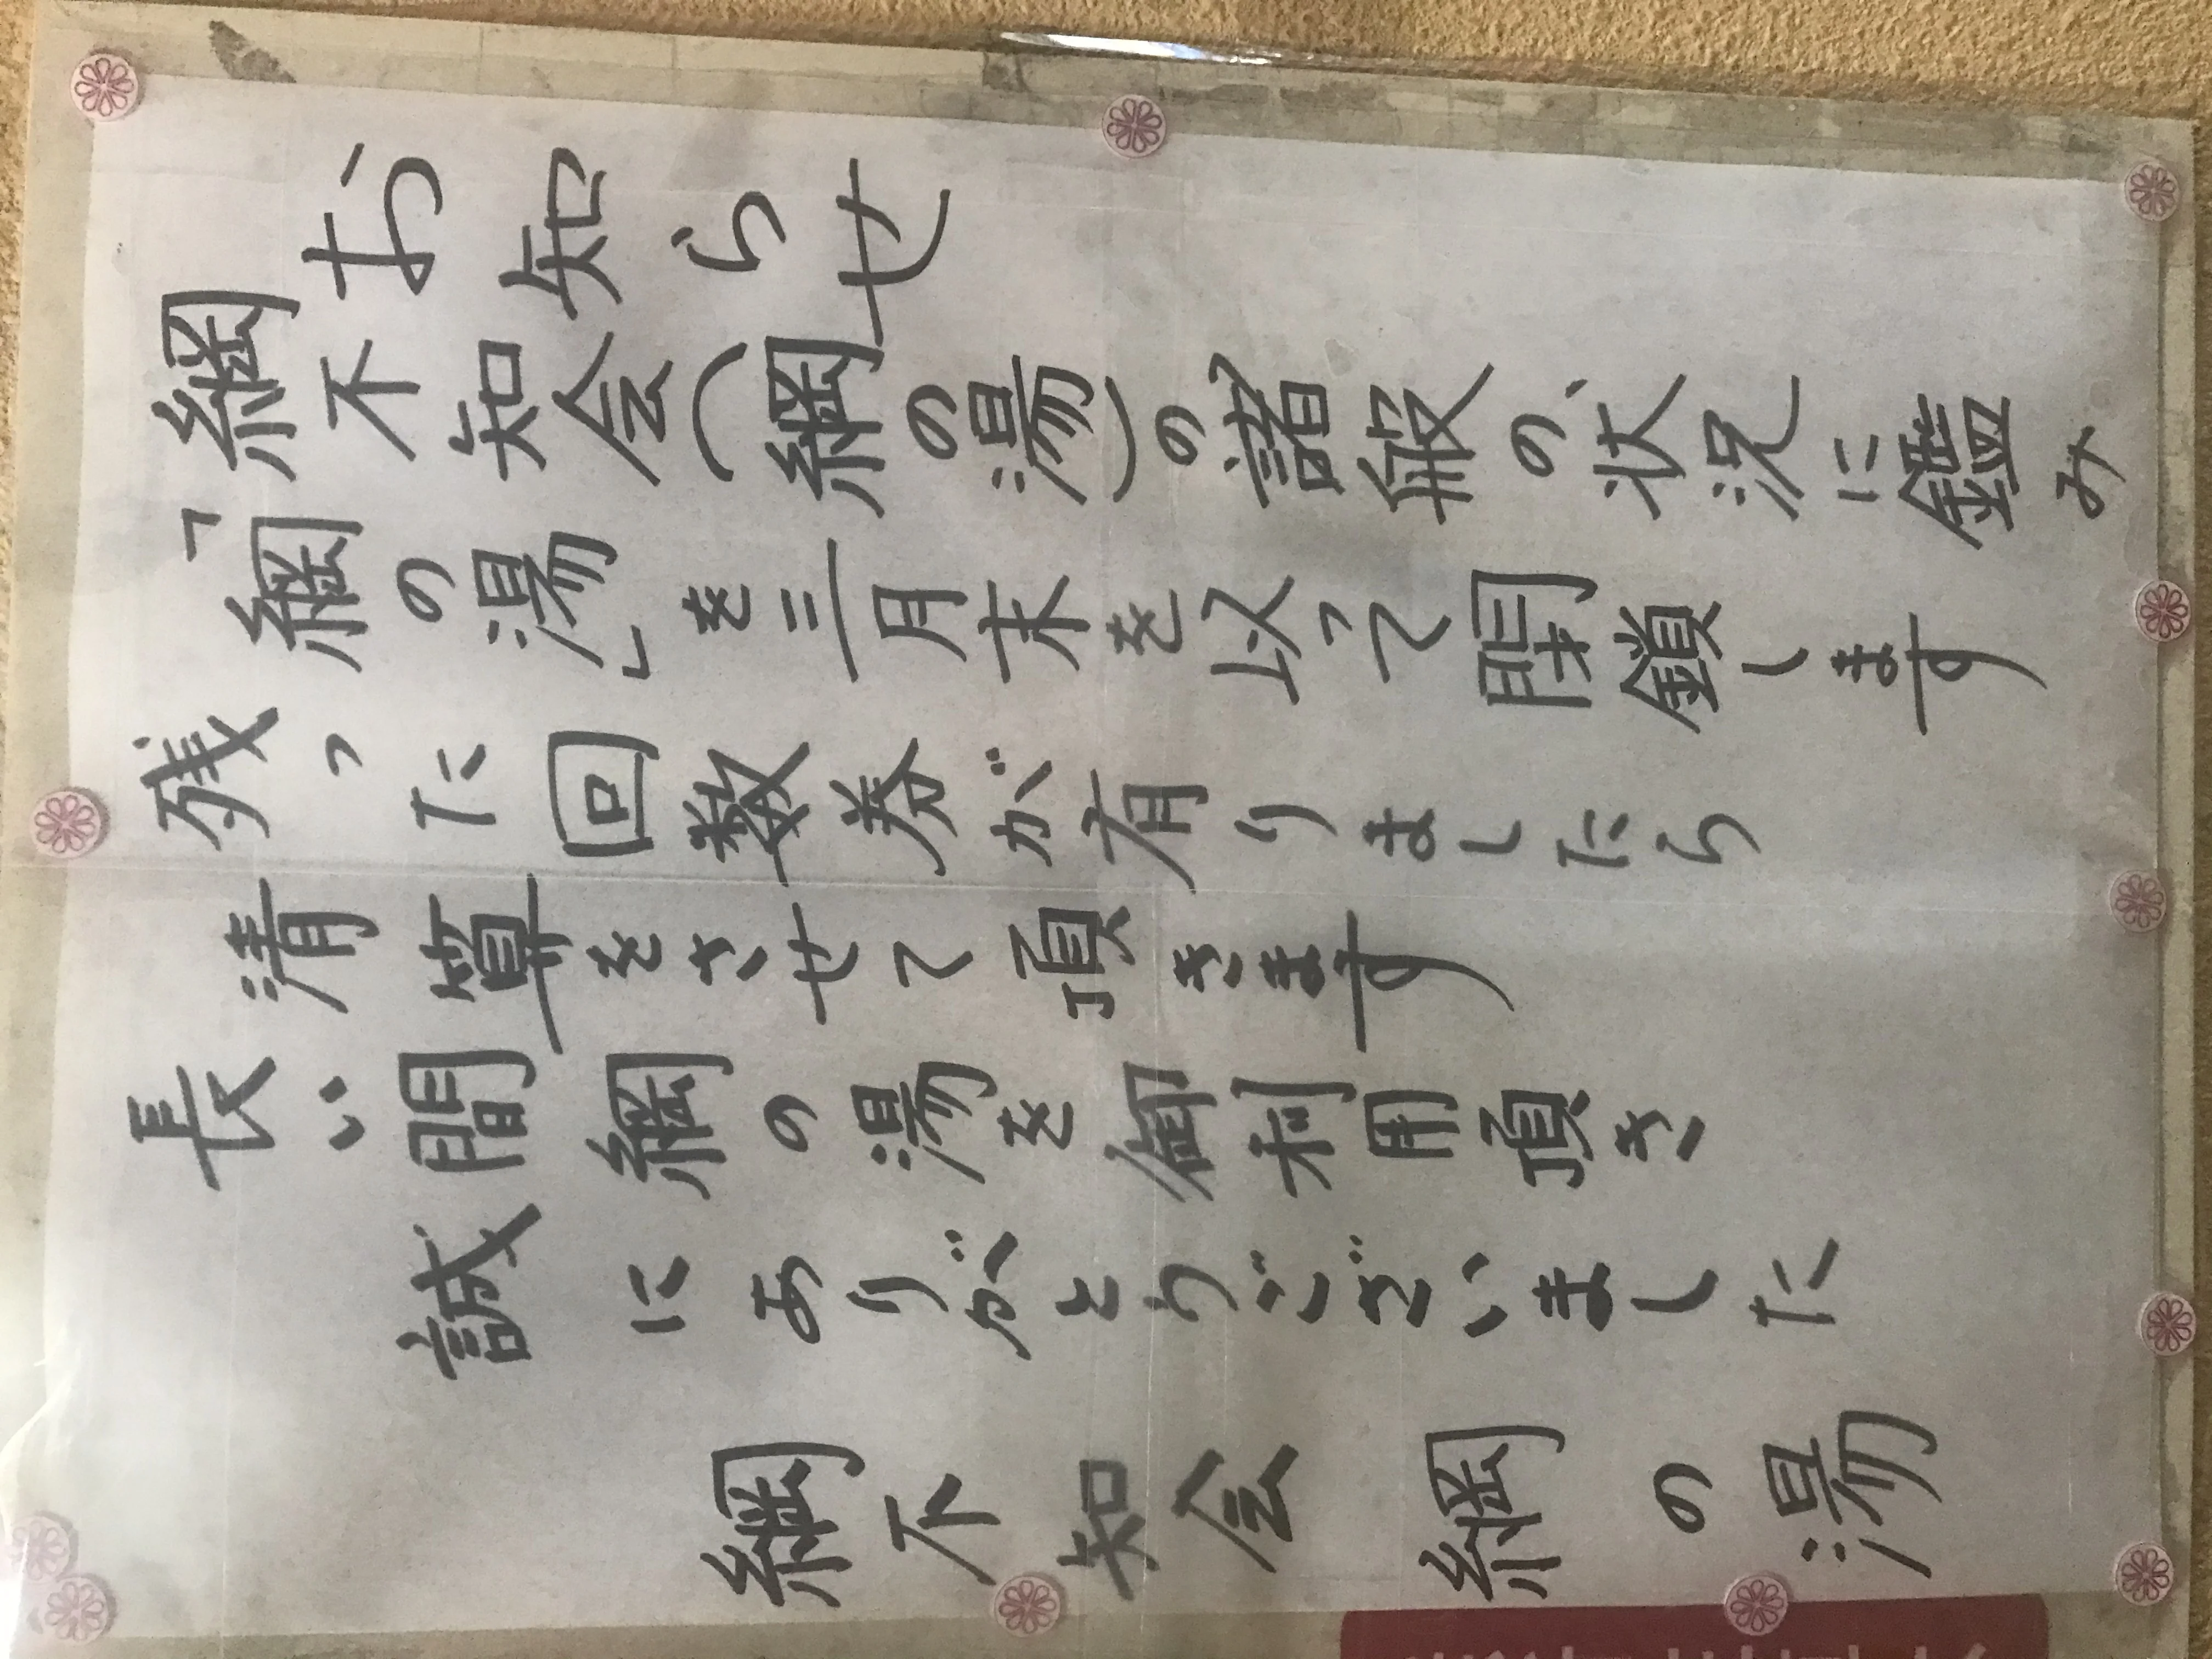 お知らせ
綱不知会(綱の湯)の諸般の状況に鑑み
「綱の湯」を三月末を以って閉鎖します
残った回数券が有りましたら
清算をさせて頂きます
長い間綱の湯を御利用頂き
誠にありがとうございました
綱不知会 綱の湯